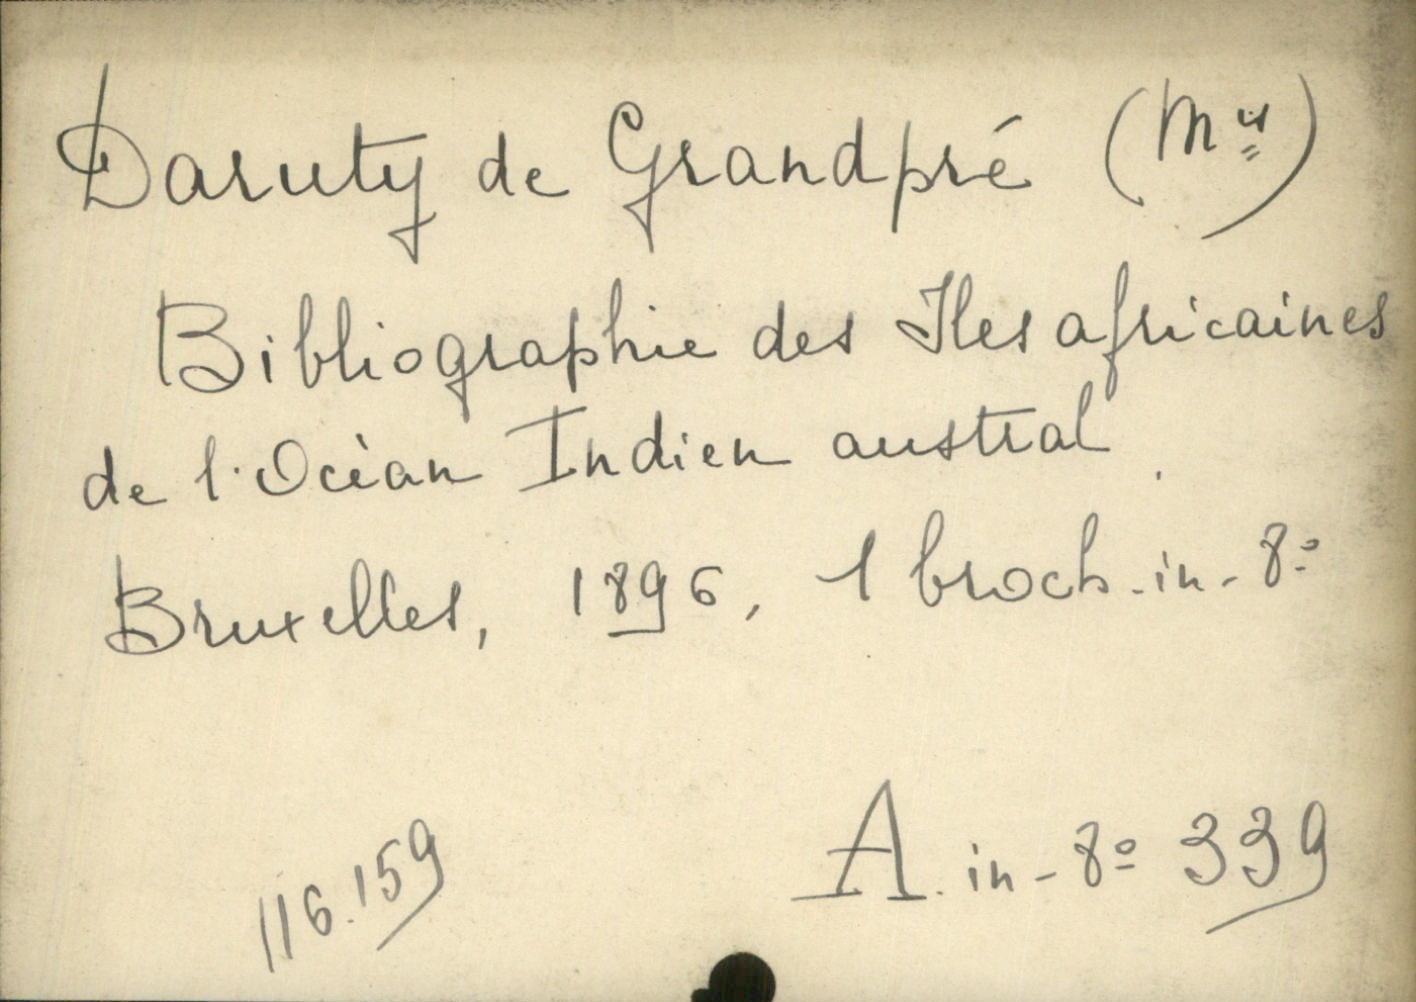 Daruty de Grandpré (Mis)
Bibliographie des Iles africaines
de l'Océan Indien austral
Bruxelles, 1896, 1 broch. in-8º
116.159
A. in-8º 339